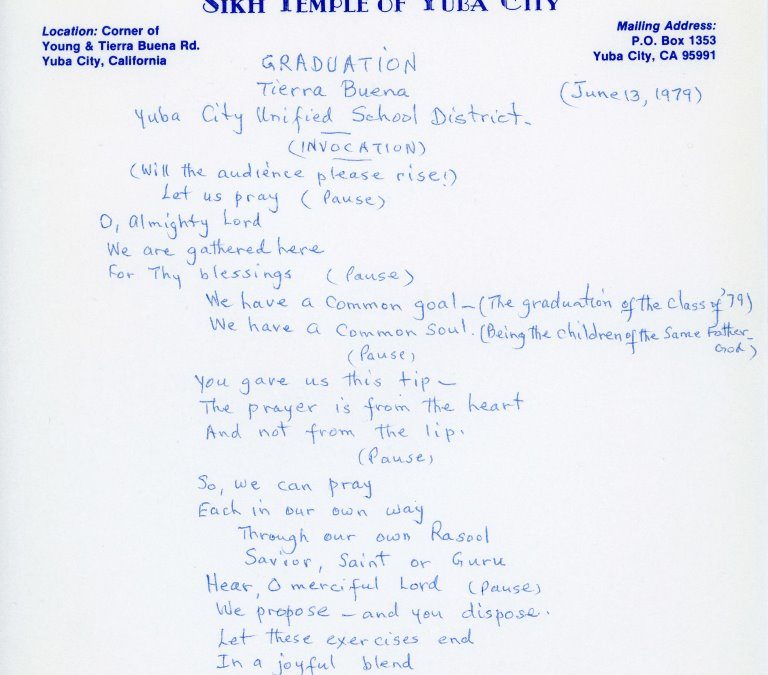 SIKH TEMPLE OF YUBA CITY
Location: Corner of
Young & Tierra Buena Rd.
Yuba City, California
Mailing Address:
P.O. Box 1353
Yuba City, CA 95991
GRADUATION
Tierra Buena
(June 13, 1979)
Yuba City Unified School District.
(INVOCATION)
(Will the audience please rise!)
Let us pray (Pause)
O, Almighty Lord
We are gathered here
For Thy blessings (Pause)
We have a Common goal - (The graduation of the class of '79)
We have a Common Soul. (Being the children of the Same Father-
God)
(Pause)
You gave us this tip -
The prayer is from the heart
And not from the lip.
(Pause)
So, we can pray
Each in our own way
Through our own Rasool
Savior, Saint or Guru
Hear, O merciful Lord (Pause)
We propose - and you dispose.
Let these exercises end
In a joyful blend